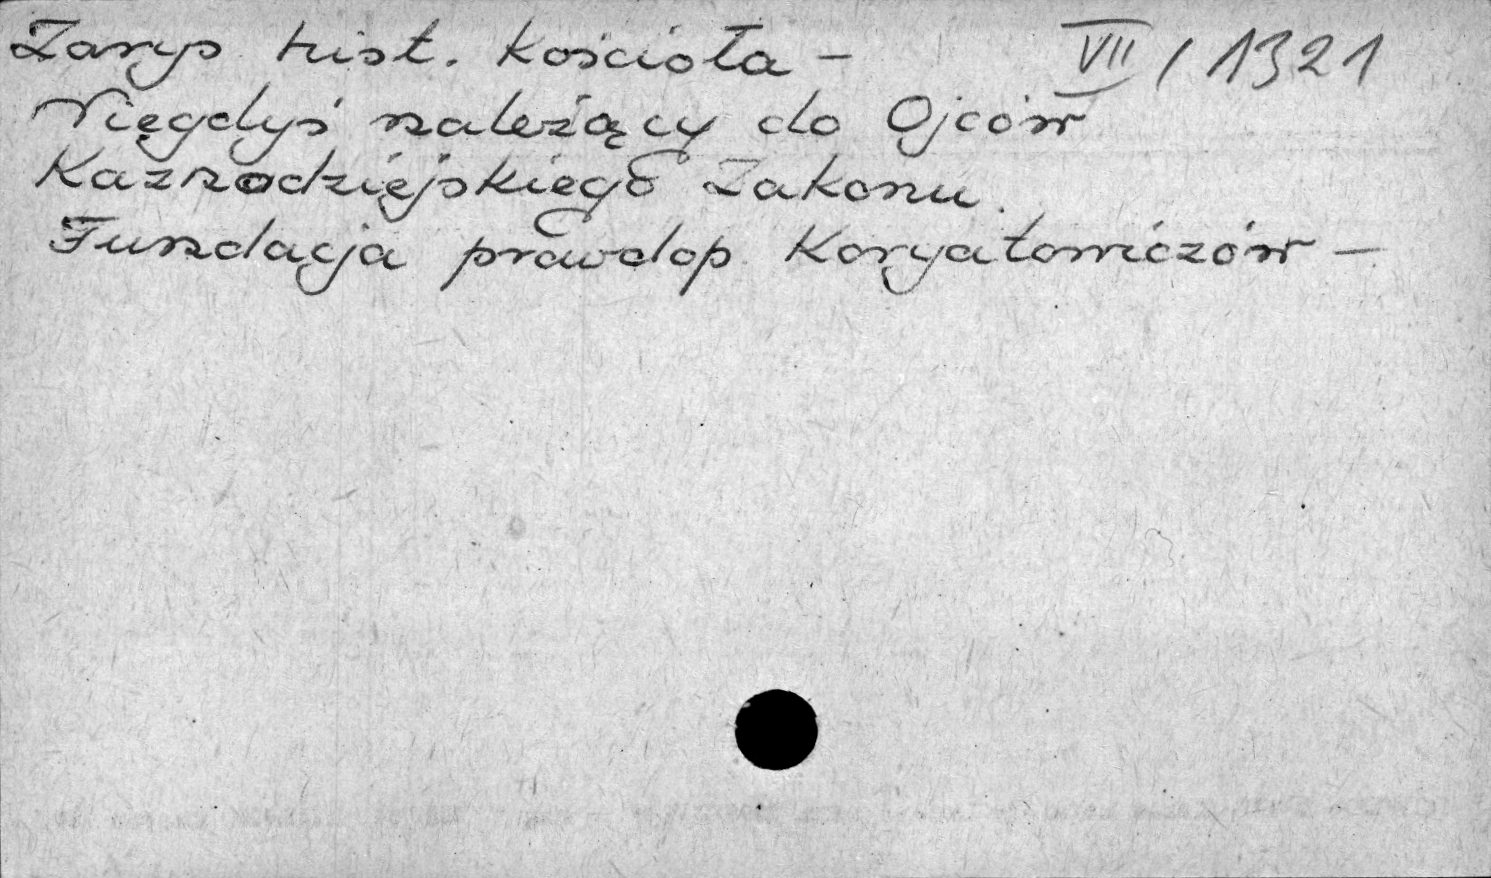 Zarys hist. Kościoła – VII / 1321
Niegdyś należący do Ojców
Kaznodziejskiego Zakonu.
Fundacja prawdop. Koryatowiczów –